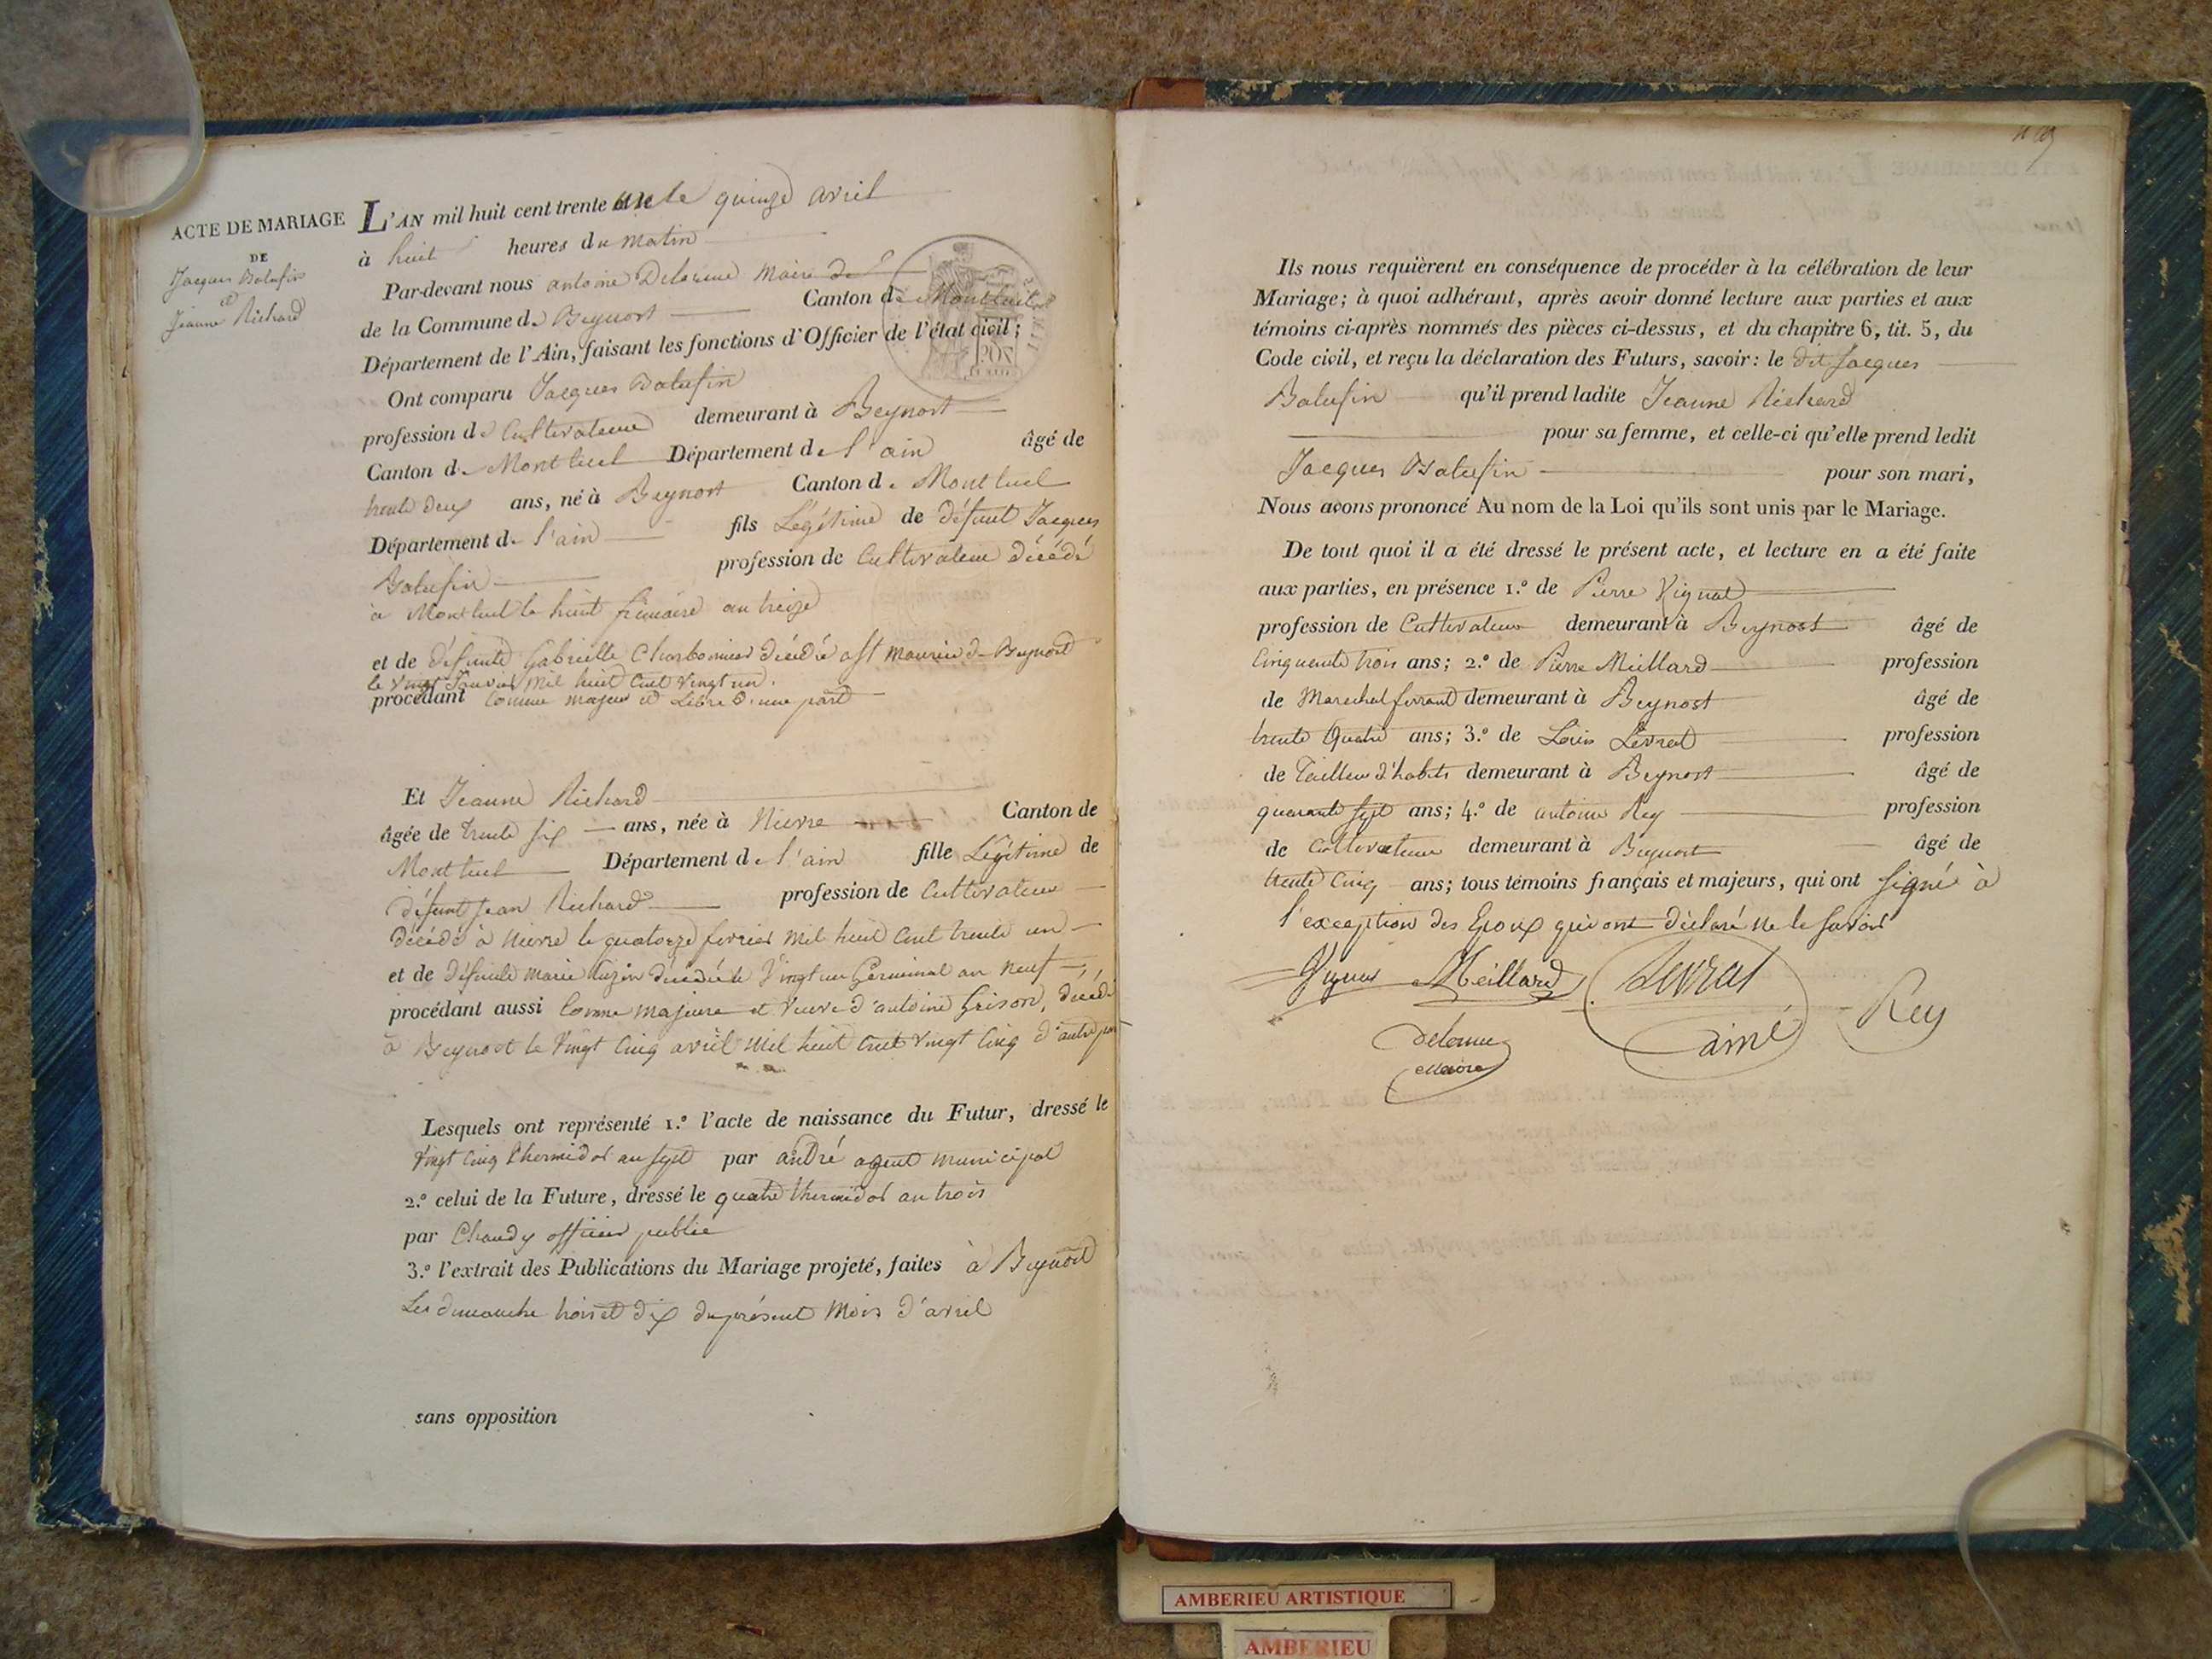 ACTE DE MARIAGE
DE
Jacques Balufin
et
Jeanne Richard
L'AN mil huit cent trente une le quinze avril
à huit heures du matin
Par-devant nous antoine Delorme Maire de
de la Commune de Beynost Canton de Montluel
Département de l'Ain, faisant les fonctions d'Officier de l'état civil;
Ont comparu Jacques Balufin
profession de Cultivateur demeurant à Beynost
Canton de Montluel Département de l'ain âgé de
trente deux ans, né à Beynost Canton de Montluel
Département de l'ain fils Légitime de défunt Jacques
Balufin profession de Cultivateur décédé
à Montluel le huit frimaire an treize
et de défunte Gabrielle Charbonnier décédée a St Maurice de Beynost
le vingt Janvier mil huit Cent vingt un.
procédant comme majeur et Libre d'une part
Et Jeanne Richard
âgée de trente six ans, née à Nievre Canton de
Montluel Département de l'ain fille Légitime de
défunt Jean Richard profession de Cultivateur
décédé à Nievre le quatorze fevrier mil huit Cent trente un
et de défunte Marie décédée le Vingt un Germinal an neuf
procédant aussi Comme majeure et Veuve d'antoine Grison, décédé
à Beynost le Vingt Cinq avril mil huit Cent vingt Cinq d'autre part
Lesquels ont représenté 1.º l'acte de naissance du Futur, dressé le
Vingt Cinq thermidor an sept par andré agent municipal
2.º celui de la Future, dressé le quatre thermidor an trois
par Chaudy officier public
3.º l'extrait des Publications du Mariage projeté, faites à Beynost
Les dimanche trois et dix du présent Mois d'avril
sans opposition
Ils nous requièrent en conséquence de procéder à la célébration de leur
Mariage; à quoi adhérant, après avoir donné lecture aux parties et aux
témoins ci-après nommés des pièces ci-dessus, et du chapitre 6, tit. 5, du
Code civil, et reçu la déclaration des Futurs, savoir: le dit Jacques
Balufin qu'il prend ladite Jeanne Richard
pour sa femme, et celle-ci qu'elle prend ledit
Jacques Balufin pour son mari,
Nous avons prononcé Au nom de la Loi qu'ils sont unis par le Mariage.
De tout quoi il a été dressé le présent acte, et lecture en a été faite
aux parties, en présence 1.º de Pierre Vignat
profession de Cultivateur demeurant à Beynost âgé de
Cinquante trois ans; 2.º de Pierre Meillard profession
de Marechal ferrant demeurant à Beynost âgé de
trente Quatre ans; 3.º de Louis Levrat profession
de Tailleur d'habits demeurant à Beynost âgé de
quarante sept ans; 4.º de antoine Rey profession
de Cultivateur demeurant à Beynost âgé de
trente Cinq ans; tous témoins français et majeurs, qui ont signé à
l'exception des Epoux qui ont déclaré ne le savoir
Meillard Levrat
ainé Rey
Delorme
Maire
AMBERIEU ARTISTIQUE
AMBERIEU